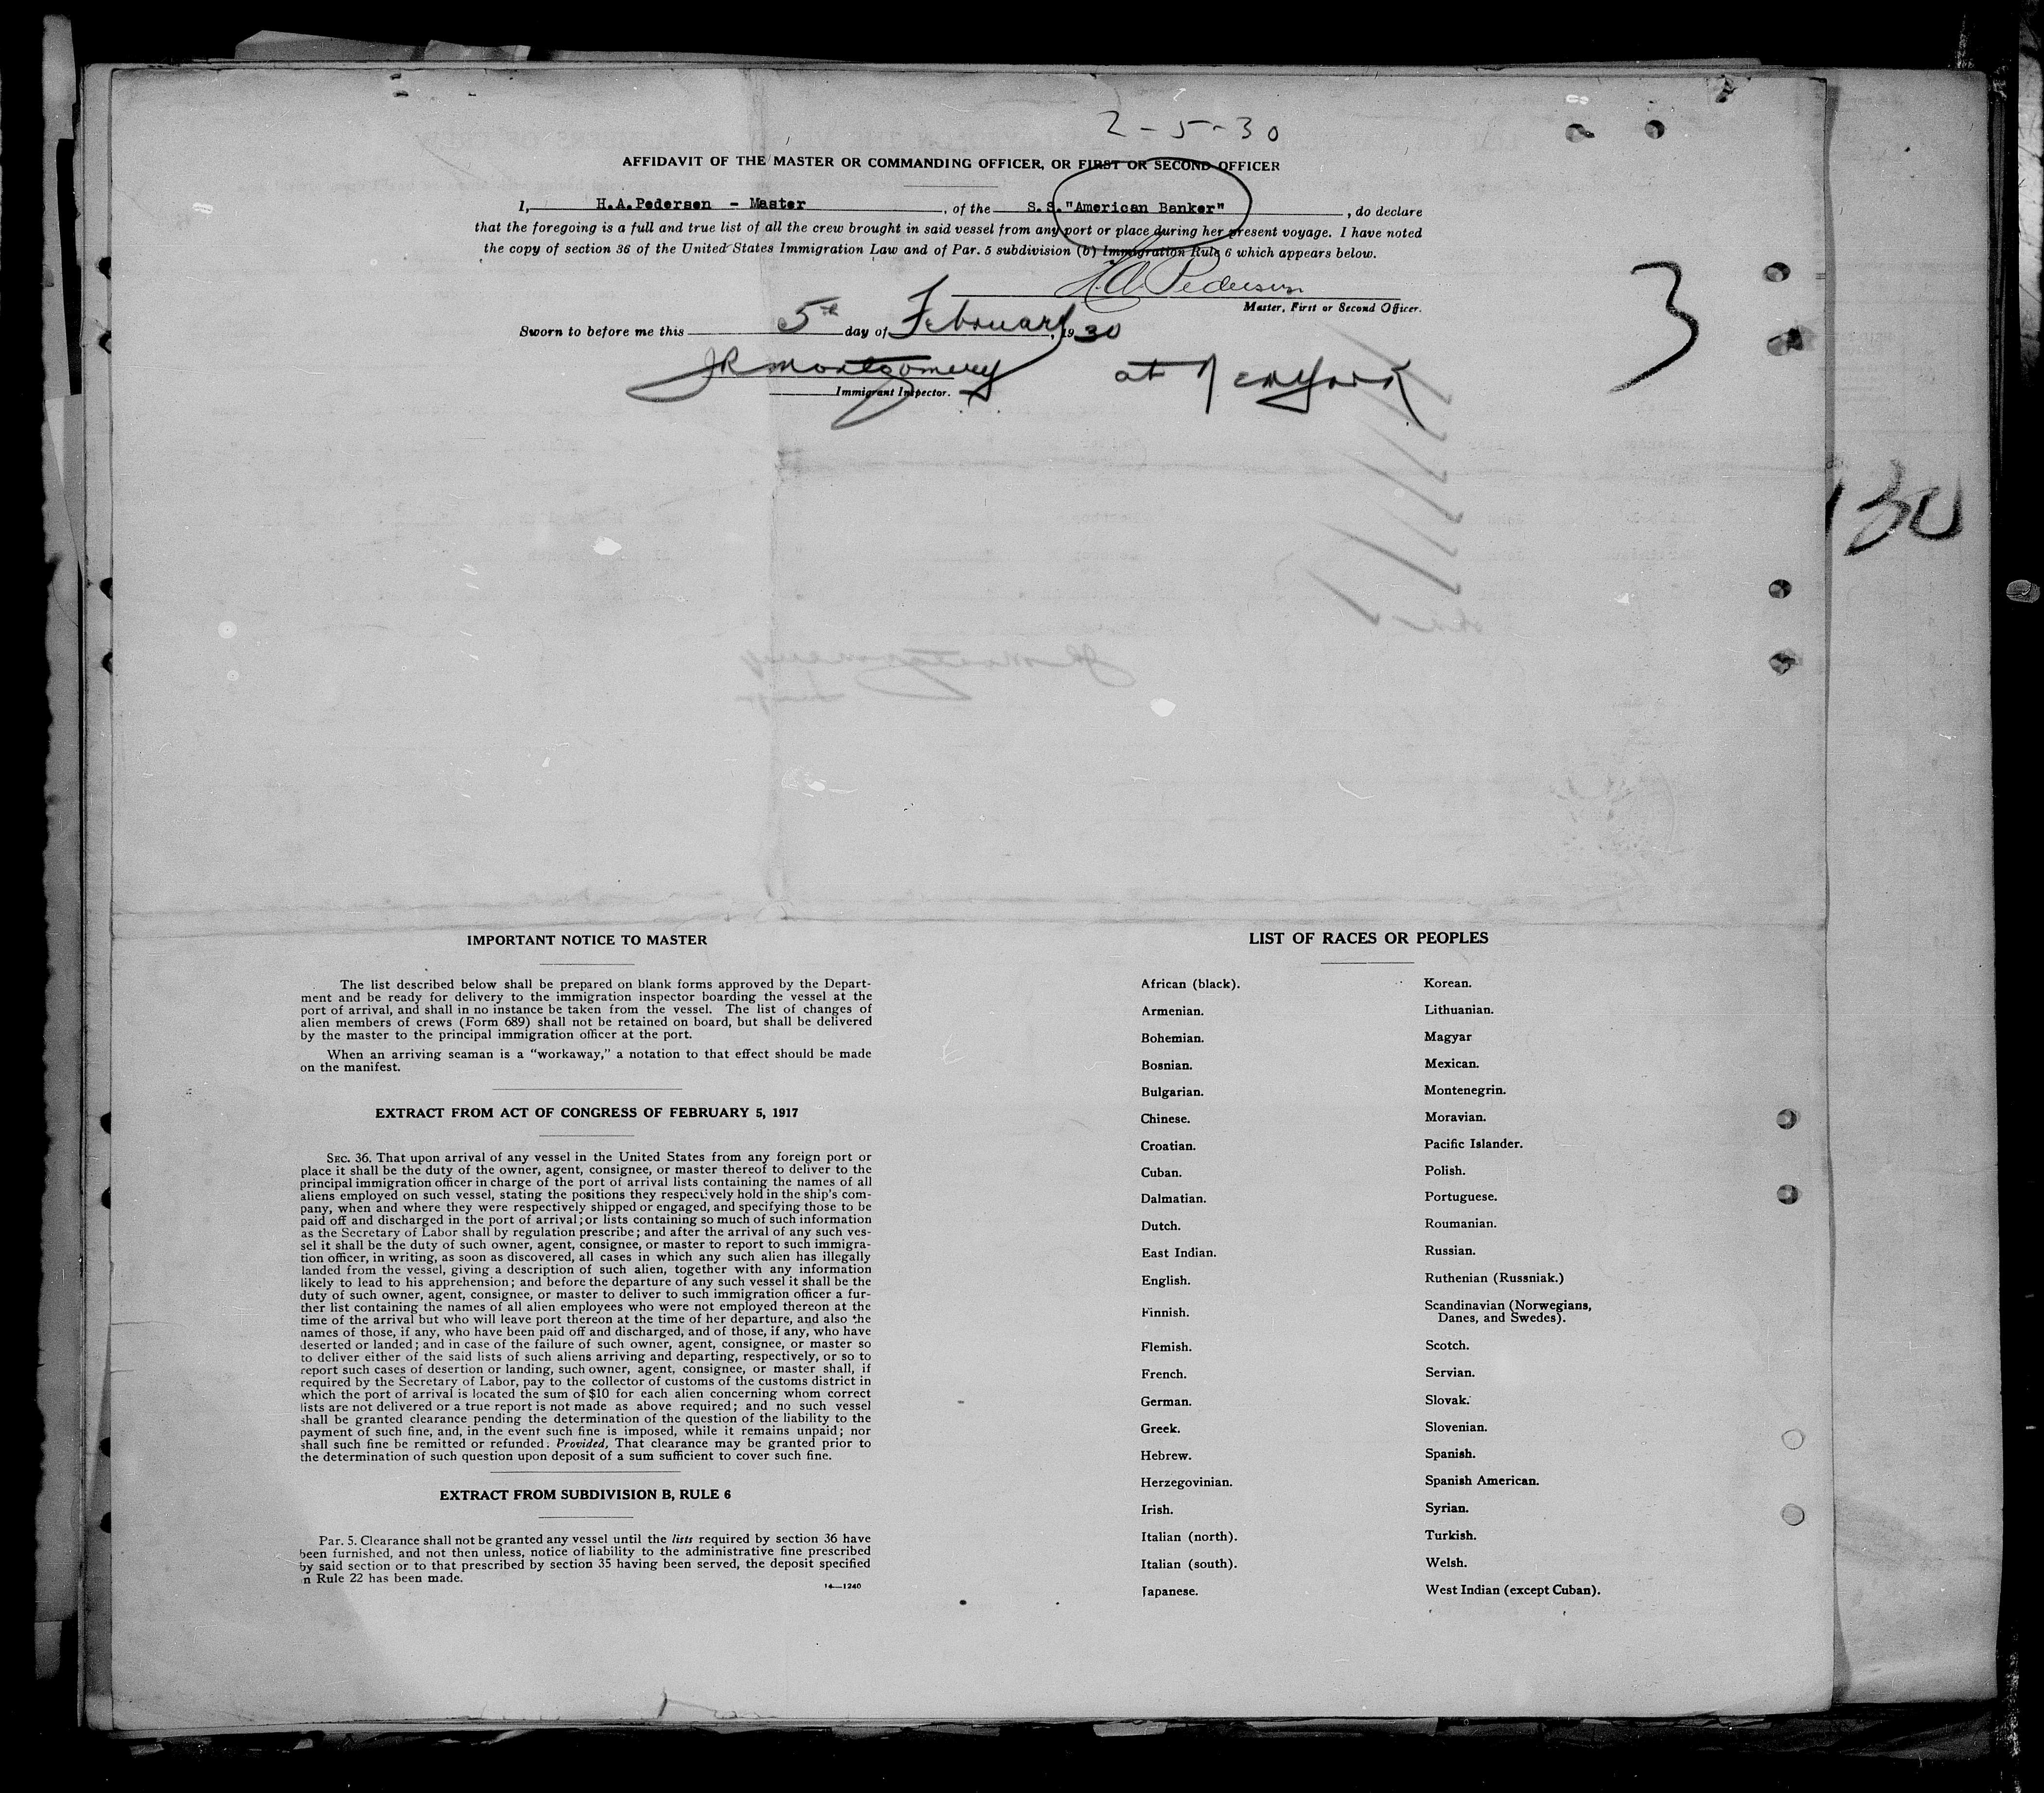 2-5-30
AFFIDAVIT OF THE MASTER OR COMMANDING OFFICER, OR FIRST OR SECOND OFFICER
I, H.A.Pedersen - Master, of the S.S."American Banker", do declare
that the foregoing is a full and true list of all the crew brought in said vessel from any port or place during her present voyage. I have noted
the copy of section 36 of the United States Immigration Law and of Par. 5 subdivision (b) Immigration Rule 6 which appears below.
H.A. Pedersen
Master, First or Second Officer.
3
Sworn to before me this 5th day of February, 1930
JR Montgomery at New York
Immigrant Inspector.
130
IMPORTANT NOTICE TO MASTER
The list described below shall be prepared on blank forms approved by the Depart-
ment and be ready for delivery to the immigration inspector boarding the vessel at the
port of arrival, and shall in no instance be taken from the vessel. The list of changes of
alien members of crews (Form 689) shall not be retained on board, but shall be delivered
by the master to the principal immigration officer at the port.
When an arriving seaman is a “workaway,” a notation to that effect should be made
on the manifest.
EXTRACT FROM ACT OF CONGRESS OF FEBRUARY 5, 1917
SEC. 36. That upon arrival of any vessel in the United States from any foreign port or
place it shall be the duty of the owner, agent, consignee, or master thereof to deliver to the
principal immigration officer in charge of the port of arrival lists containing the names of all
aliens employed on such vessel, stating the positions they respectively hold in the ship's com-
pany, when and where they were respectively shipped or engaged, and specifying those to be
paid off and discharged in the port of arrival; or lists containing so much of such information
as the Secretary of Labor shall by regulation prescribe; and after the arrival of any such ves-
sel it shall be the duty of such owner, agent, consignee, or master to report to such immigra-
tion officer, in writing, as soon as discovered, all cases in which any such alien has illegally
landed from the vessel, giving a description of such alien, together with any information
likely to lead to his apprehension; and before the departure of any such vessel it shall be the
duty of such owner, agent, consignee, or master to deliver to such immigration officer a fur-
ther list containing the names of all alien employees who were not employed thereon at the
time of the arrival but who will leave port thereon at the time of her departure, and also the
names of those, if any, who have been paid off and discharged, and of those, if any, who have
deserted or landed; and in case of the failure of such owner, agent, consignee, or master so
to deliver either of the said lists of such aliens arriving and departing, respectively, or so to
report such cases of desertion or landing, such owner, agent, consignee, or master shall, if
required by the Secretary of Labor, pay to the collector of customs of the customs district in
which the port of arrival is located the sum of $10 for each alien concerning whom correct
lists are not delivered or a true report is not made as above required; and no such vessel
shall be granted clearance pending the determination of the question of the liability to the
payment of such fine, and, in the event such fine is imposed, while it remains unpaid; nor
shall such fine be remitted or refunded: Provided, That clearance may be granted prior to
the determination of such question upon deposit of a sum sufficient to cover such fine.
EXTRACT FROM SUBDIVISION B, RULE 6
Par. 5. Clearance shall not be granted any vessel until the lists required by section 36 have
been furnished, and not then unless, notice of liability to the administrative fine prescribed
by said section or to that prescribed by section 35 having been served, the deposit specified
n Rule 22 has been made.
14—1240
LIST OF RACES OR PEOPLES
African (black).
Armenian.
Bohemian.
Bosnian.
Bulgarian.
Chinese.
Croatian.
Cuban.
Dalmatian.
Dutch.
East Indian.
English.
Finnish.
Flemish.
French.
German.
Greek.
Hebrew.
Herzegovinian.
Irish.
Italian (north).
Italian (south).
Japanese.
Korean.
Lithuanian.
Magyar
Mexican.
Montenegrin.
Moravian.
Pacific Islander.
Polish.
Portuguese.
Roumanian.
Russian.
Ruthenian (Russniak.)
Scandinavian (Norwegians,
Danes, and Swedes).
Scotch.
Servian.
Slovak.
Slovenian.
Spanish.
Spanish American.
Syrian.
Turkish.
Welsh.
West Indian (except Cuban).